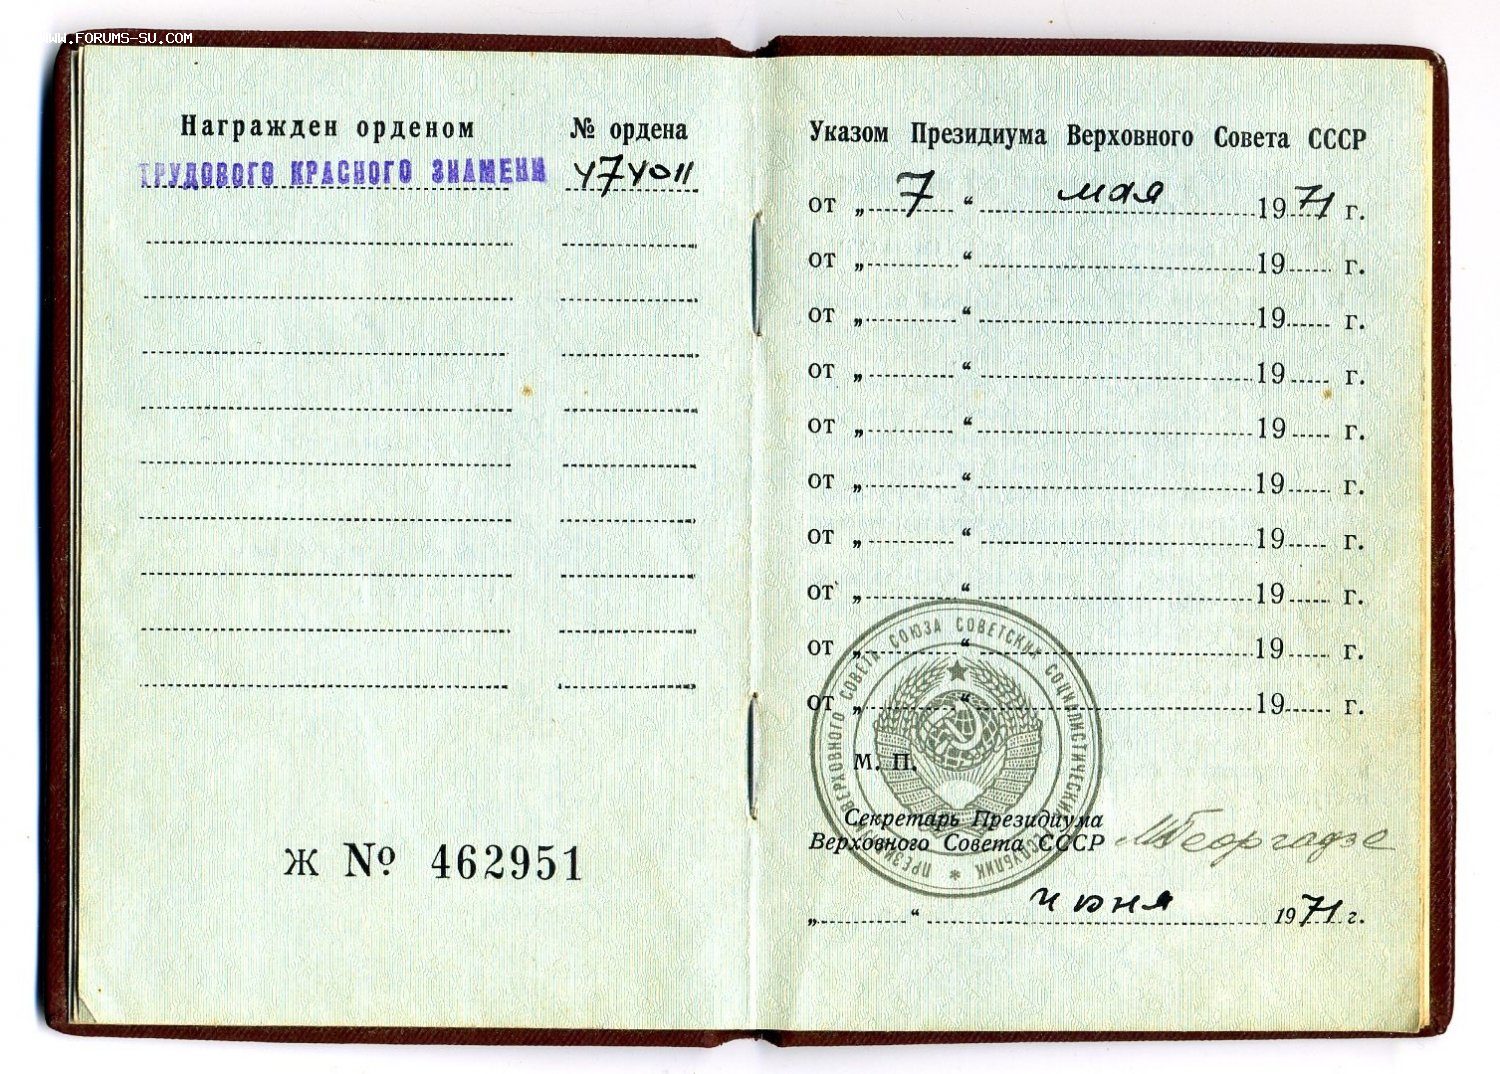 WWW.FORUMS-SU.COM
Награжден орденом № ордена
ТРУДОВОГО КРАСНОГО ЗНАМЕНИ 474011
Ж № 462951
Указом Президиума Верховного Совета СССР
от „ 7 “ мая 1971 г.
от „ “ 19 г.
от „ “ 19 г.
от „ “ 19 г.
от „ “ 19 г.
от „ “ 19 г.
от „ “ 19 г.
от „ “ 19 г.
от „ “ 19 г.
от „ “ 19 г.
ПРЕЗИДИУМ ВЕРХОВНОГО СОВЕТА СОЮЗА СОВЕТСКИХ СОЦИАЛИСТИЧЕСКИХ РЕСПУБЛИК
М. П.
Секретарь Президиума
Верховного Совета СССР М Георгадзе
„ “ июня 1971 г.